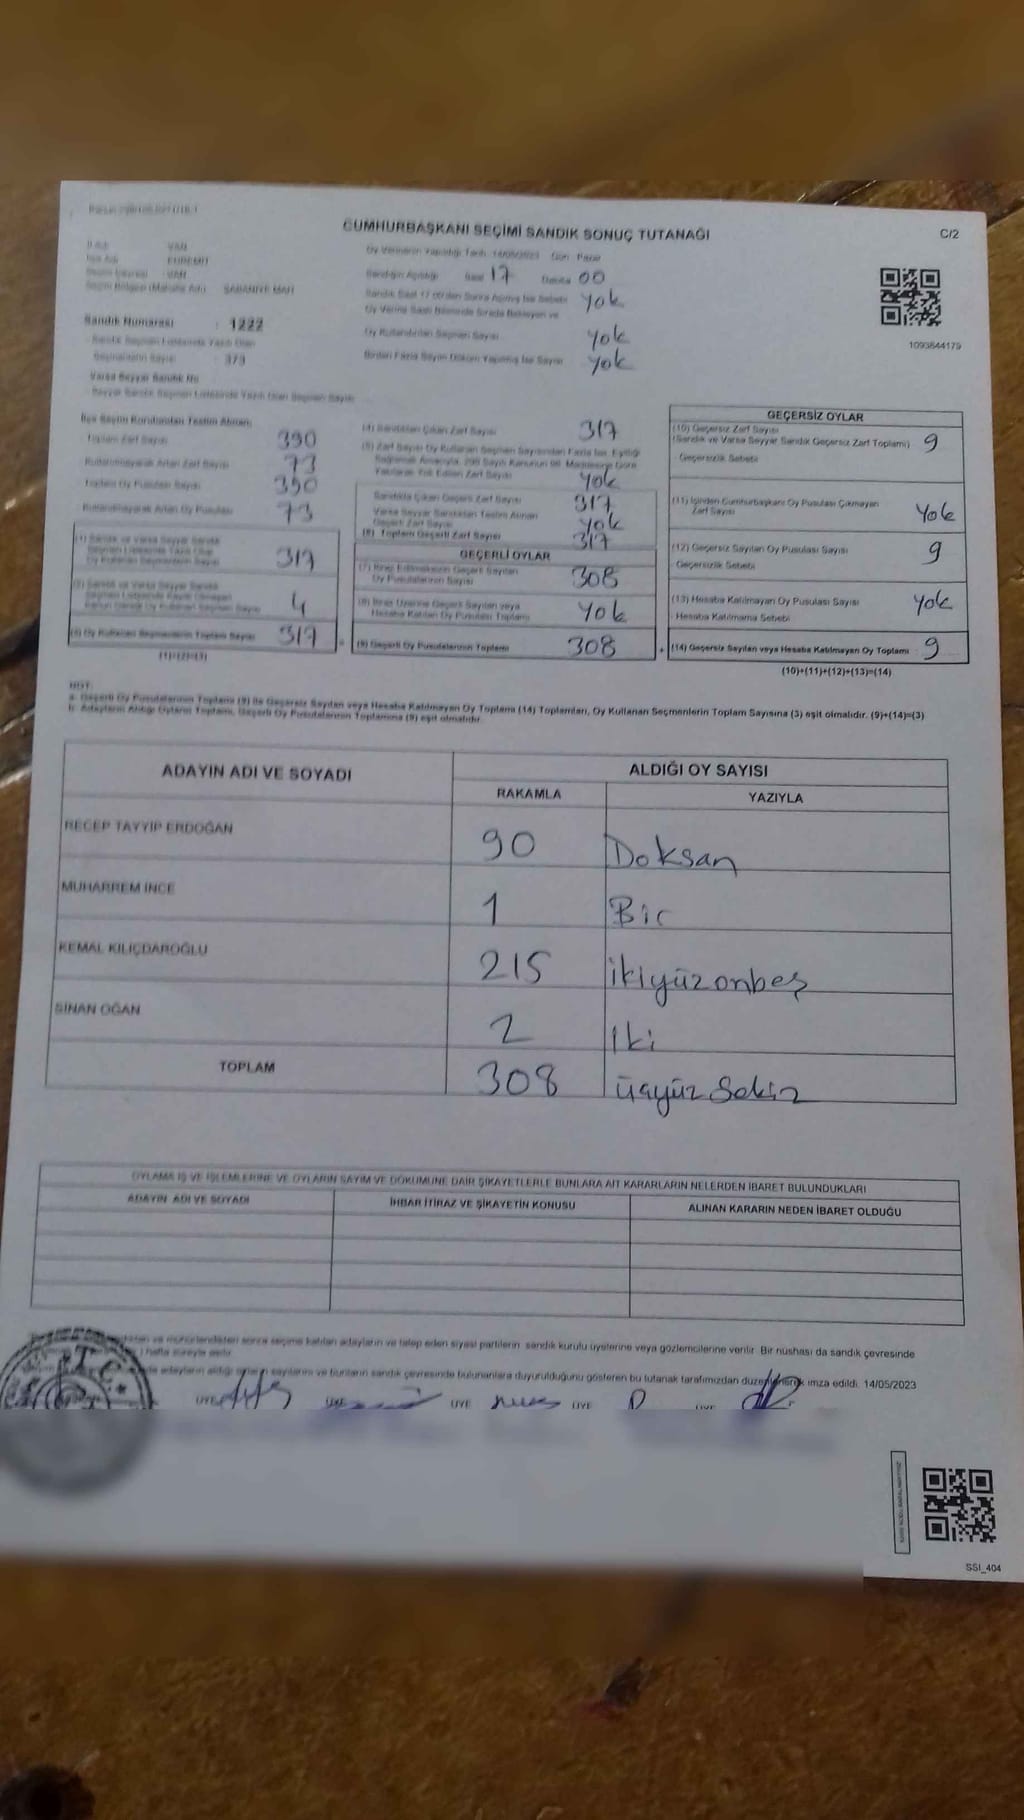 CUMHURBAŞKANI SEÇİMİ SANDIK SONUÇ TUTANAĞI
C/2
İl Adı VAN
İlçe Adı EDREMİT
VAN
Seçim Bölgesi (Mahalle Adı) ŞABANİYE MAH
Oy Vermenin Yapıldığı Tarih 14/05/2023 Gün Pazar
Sandığın Açıldığı Saat 17 Dakika 00
Sandık Saat 17.00'den Sonra Açılmış İse Sebebi Yok
Oy Verme Saati Bitiminde Sırada Bekleyen ve
Oy Kullandırılan Seçmen Sayısı Yok
Birden Fazla Sayım Döküm Yapılmış İse Sayısı Yok
1093844179
Sandık Numarası : 1222
Sandık Seçmen Listesinde Yazılı Olan
Seçmenlerin Sayısı : 373
Varsa Seyyar Sandık No
Seyyar Sandık Seçmen Listesinde Yazılı Olan Seçmen Sayısı
İlçe Seçim Kurulundan Teslim Alınan;
Toplam Zarf Sayısı 390
Kullanılmayarak Artan Zarf Sayısı 73
Toplam Oy Pusulası Sayısı 390
Kullanılmayarak Artan Oy Pusulası 73
(1) Sandık ve Varsa Seyyar Sandık
Seçmen Listesinde Yazılı Olup
Oy Kullanan Seçmenlerin Sayısı 317
(2) Sandık ve Varsa Seyyar Sandık
Seçmen Listesinde Kayıtlı Olmayan
4
(3) Oy Kullanan Seçmenlerin Toplam Sayısı 317
(1)+(2)=(3)
(4) Sandıktan Çıkan Zarf Sayısı 317
(5) Zarf Sayısı Oy Kullanan Seçmen Sayısından Fazla İse, Eşitliği
Sağlamak Amacıyla, 298 Sayılı Kanunun 98. Maddesine Göre
Yakılarak Yok Edilen Zarf Sayısı Yok
Sandıkta Çıkan Geçerli Zarf Sayısı 317
Varsa Seyyar Sandıktan Teslim Alınan
Geçerli Zarf Sayısı Yok
(6) Toplam Geçerli Zarf Sayısı 317
GEÇERLİ OYLAR
(7) İtiraz Edilmeksizin Geçerli Sayılan
Oy Pusulalarının Sayısı 308
(8) İtiraz Üzerine Geçerli Sayılan veya
Hesaba Katılan Oy Pusulası Toplamı Yok
= (9) Geçerli Oy Pusulalarının Toplamı 308
GEÇERSİZ OYLAR
(10) Geçersiz Zarf Sayısı
(Sandık ve Varsa Seyyar Sandık Geçersiz Zarf Toplamı) 9
Geçersizlik Sebebi
(11) İçinden Cumhurbaşkanı Oy Pusulası Çıkmayan
Zarf Sayısı Yok
(12) Geçersiz Sayılan Oy Pusulası Sayısı 9
Geçersizlik Sebebi
(13) Hesaba Katılmayan Oy Pusulası Sayısı Yok
Hesaba Katılmama Sebebi
+ (14) Geçersiz Sayılan veya Hesaba Katılmayan Oy Toplamı : 9
(10)+(11)+(12)+(13)=(14)
NOT:
a- Geçerli Oy Pusulalarının Toplamı (9) ile Geçersiz Sayılan veya Hesaba Katılmayan Oy Toplamı (14) Toplamları, Oy Kullanan Seçmenlerin Toplam Sayısına (3) eşit olmalıdır. (9)+(14)=(3)
b- Adayların Aldığı Oyların Toplamı, Geçerli Oy Pusulalarının Toplamına (9) eşit olmalıdır.
ADAYIN ADI VE SOYADI ALDIĞI OY SAYISI
RAKAMLA YAZIYLA
RECEP TAYYİP ERDOĞAN 90 Doksan
MUHARREM İNCE 1 Bir
KEMAL KILIÇDAROĞLU 215 ikiyüzonbeş
SİNAN OĞAN 2 iki
TOPLAM 308 üçyüz Sekiz
OYLAMA İŞ VE İŞLEMLERİNE VE OYLARIN SAYIM VE DÖKÜMÜNE DAİR ŞİKAYETLERLE BUNLARA AİT KARARLARIN NELERDEN İBARET BULUNDUKLARI
ADAYIN ADI VE SOYADI İHBAR İTİRAZ VE ŞİKAYETİN KONUSU ALINAN KARARIN NEDEN İBARET OLDUĞU
ve mühürlendikten sonra seçime katılan adayların ve talep eden siyasi partilerin sandık kurulu üyelerine veya gözlemcilerine verilir. Bir nüshası da sandık çevresinde
1 hafta süreyle asılır.
adayların aldığı oyların sayılarını ve bunların sandık çevresinde bulunanlara duyurulduğunu gösteren bu tutanak tarafımızdan düzenlenerek imza edildi. 14/05/2023
T.C.
ÜYE ÜYE ÜYE ÜYE ÜYE
SSI_404